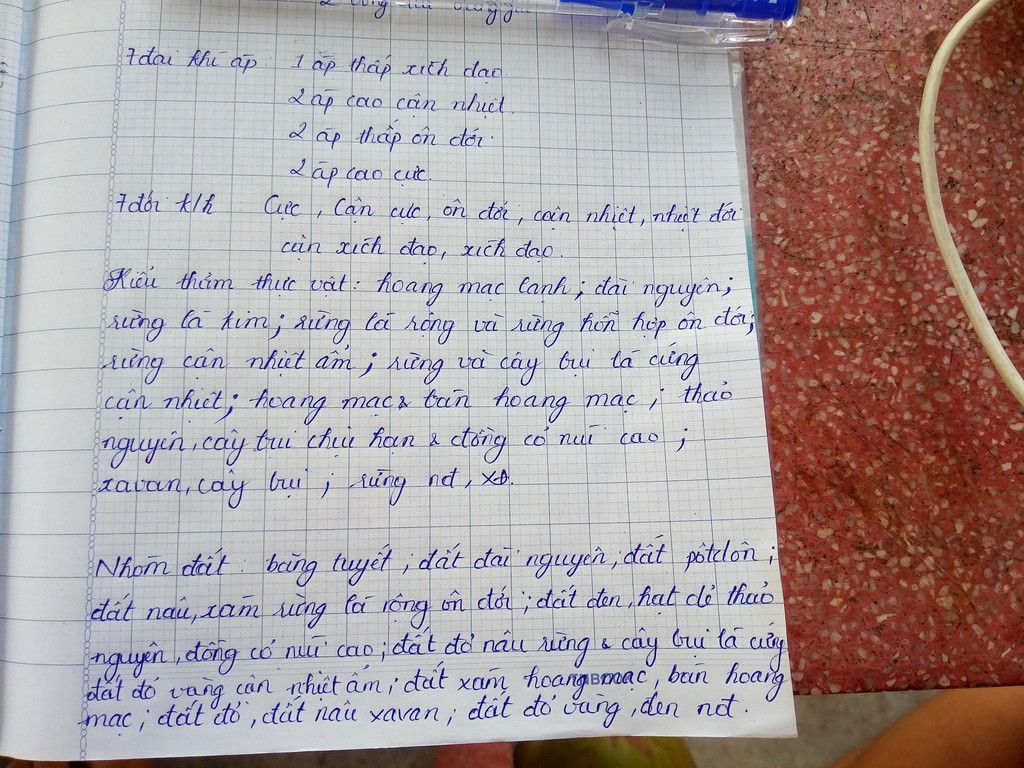 7 đai khí áp: 1 áp thấp xích đạo.
2 áp cao cận nhiệt.
2 áp thấp ôn đới.
2 áp cao cực.
7 đới k/h Cực, Cận cực, ôn đới, cận nhiệt, nhiệt đới
cận xích đạo, xích đạo.
Kiểu thảm thực vật: hoang mạc lạnh; đài nguyên;
rừng lá kim; rừng lá rộng và rừng hỗn hợp ôn đới;
rừng cận nhiệt ẩm; rừng và cây bụi lá cứng
cận nhiệt; hoang mạc & bán hoang mạc; thảo
nguyên, cây bụi chịu hạn & đồng cỏ núi cao;
xavan, cây bụi; rừng nđ, xđ.
Nhóm đất: băng tuyết; đất đài nguyên, đất pôtdôn;
đất nâu, xám rừng lá rộng ôn đới; đất đen, hạt dẻ thảo
nguyên, đồng cỏ núi cao; đất đỏ nâu rừng & cây bụi lá cứng
đất đỏ vàng cận nhiệt ẩm; đất xám hoang mạc, bán hoang
mạc; đất đỏ, đất nâu xavan; đất đỏ vàng, đen nđ.